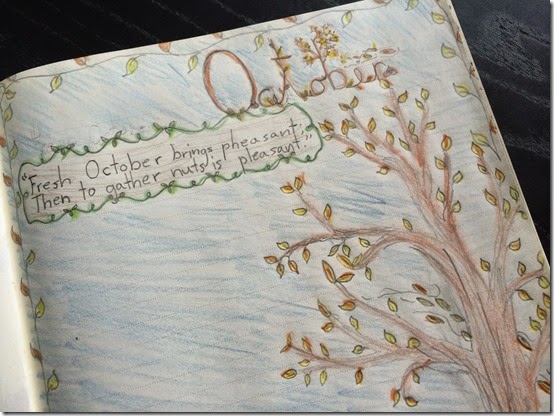 October
"Fresh October brings pheasant;
Then to gather nuts is pleasant."